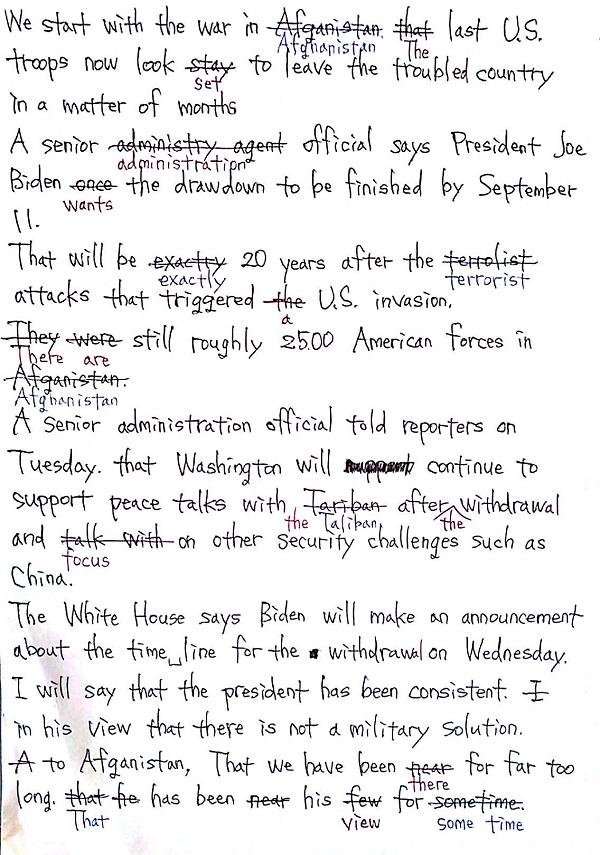 We start with the war in Afganistan. that last U.S.
Afghanistan The
troops now look stay to leave the troubled country
set
in a matter of months
A senior administry agent official says President Joe
administration
Biden once the drawdown to be finished by September
wants
11.
That will be exactry 20 years after the terrolist
exactly terrorist
attacks that triggered the U.S. invasion.
a
They were still roughly 2500 American forces in
There are
Afganistan.
Afghanistan
A senior administration official told reporters on
Tuesday. that Washington will continue to
support peace talks with Tariban after withdrawal
the Taliban the
and talk with on other security challenges such as
focus
China.
The White House says Biden will make an announcement
about the time line for the withdrawal on Wednesday.
I will say that the president has been consistent. I
in his view that there is not a military solution.
A to Afganistan, That we have been near for far too
there
long. that he has been near his few for sometime.
That view some time